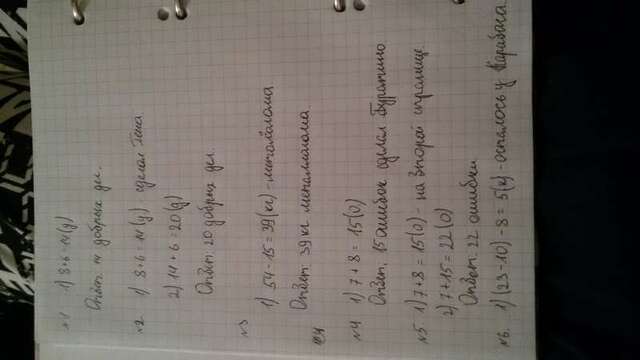 №1 1) 8+6=14(д)
Ответ: 14 добрых дел.
№2 1) 8+6=14(д) сделал Гена
2) 14+6=20(д)
Ответ: 20 добрых дел.
№3
1) 54-15=39(кг)-металлолома
Ответ: 39 кг металлолома
№4 1) 7+8=15(О)
Ответ: 15 ошибок сделал Буратино
№5 1) 7+8=15(О) на второй странице
2) 7+15=22(О)
Ответ: 22 ошибки
№6. 1) (23-10)-8=5(к)-осталось у Карабаса.